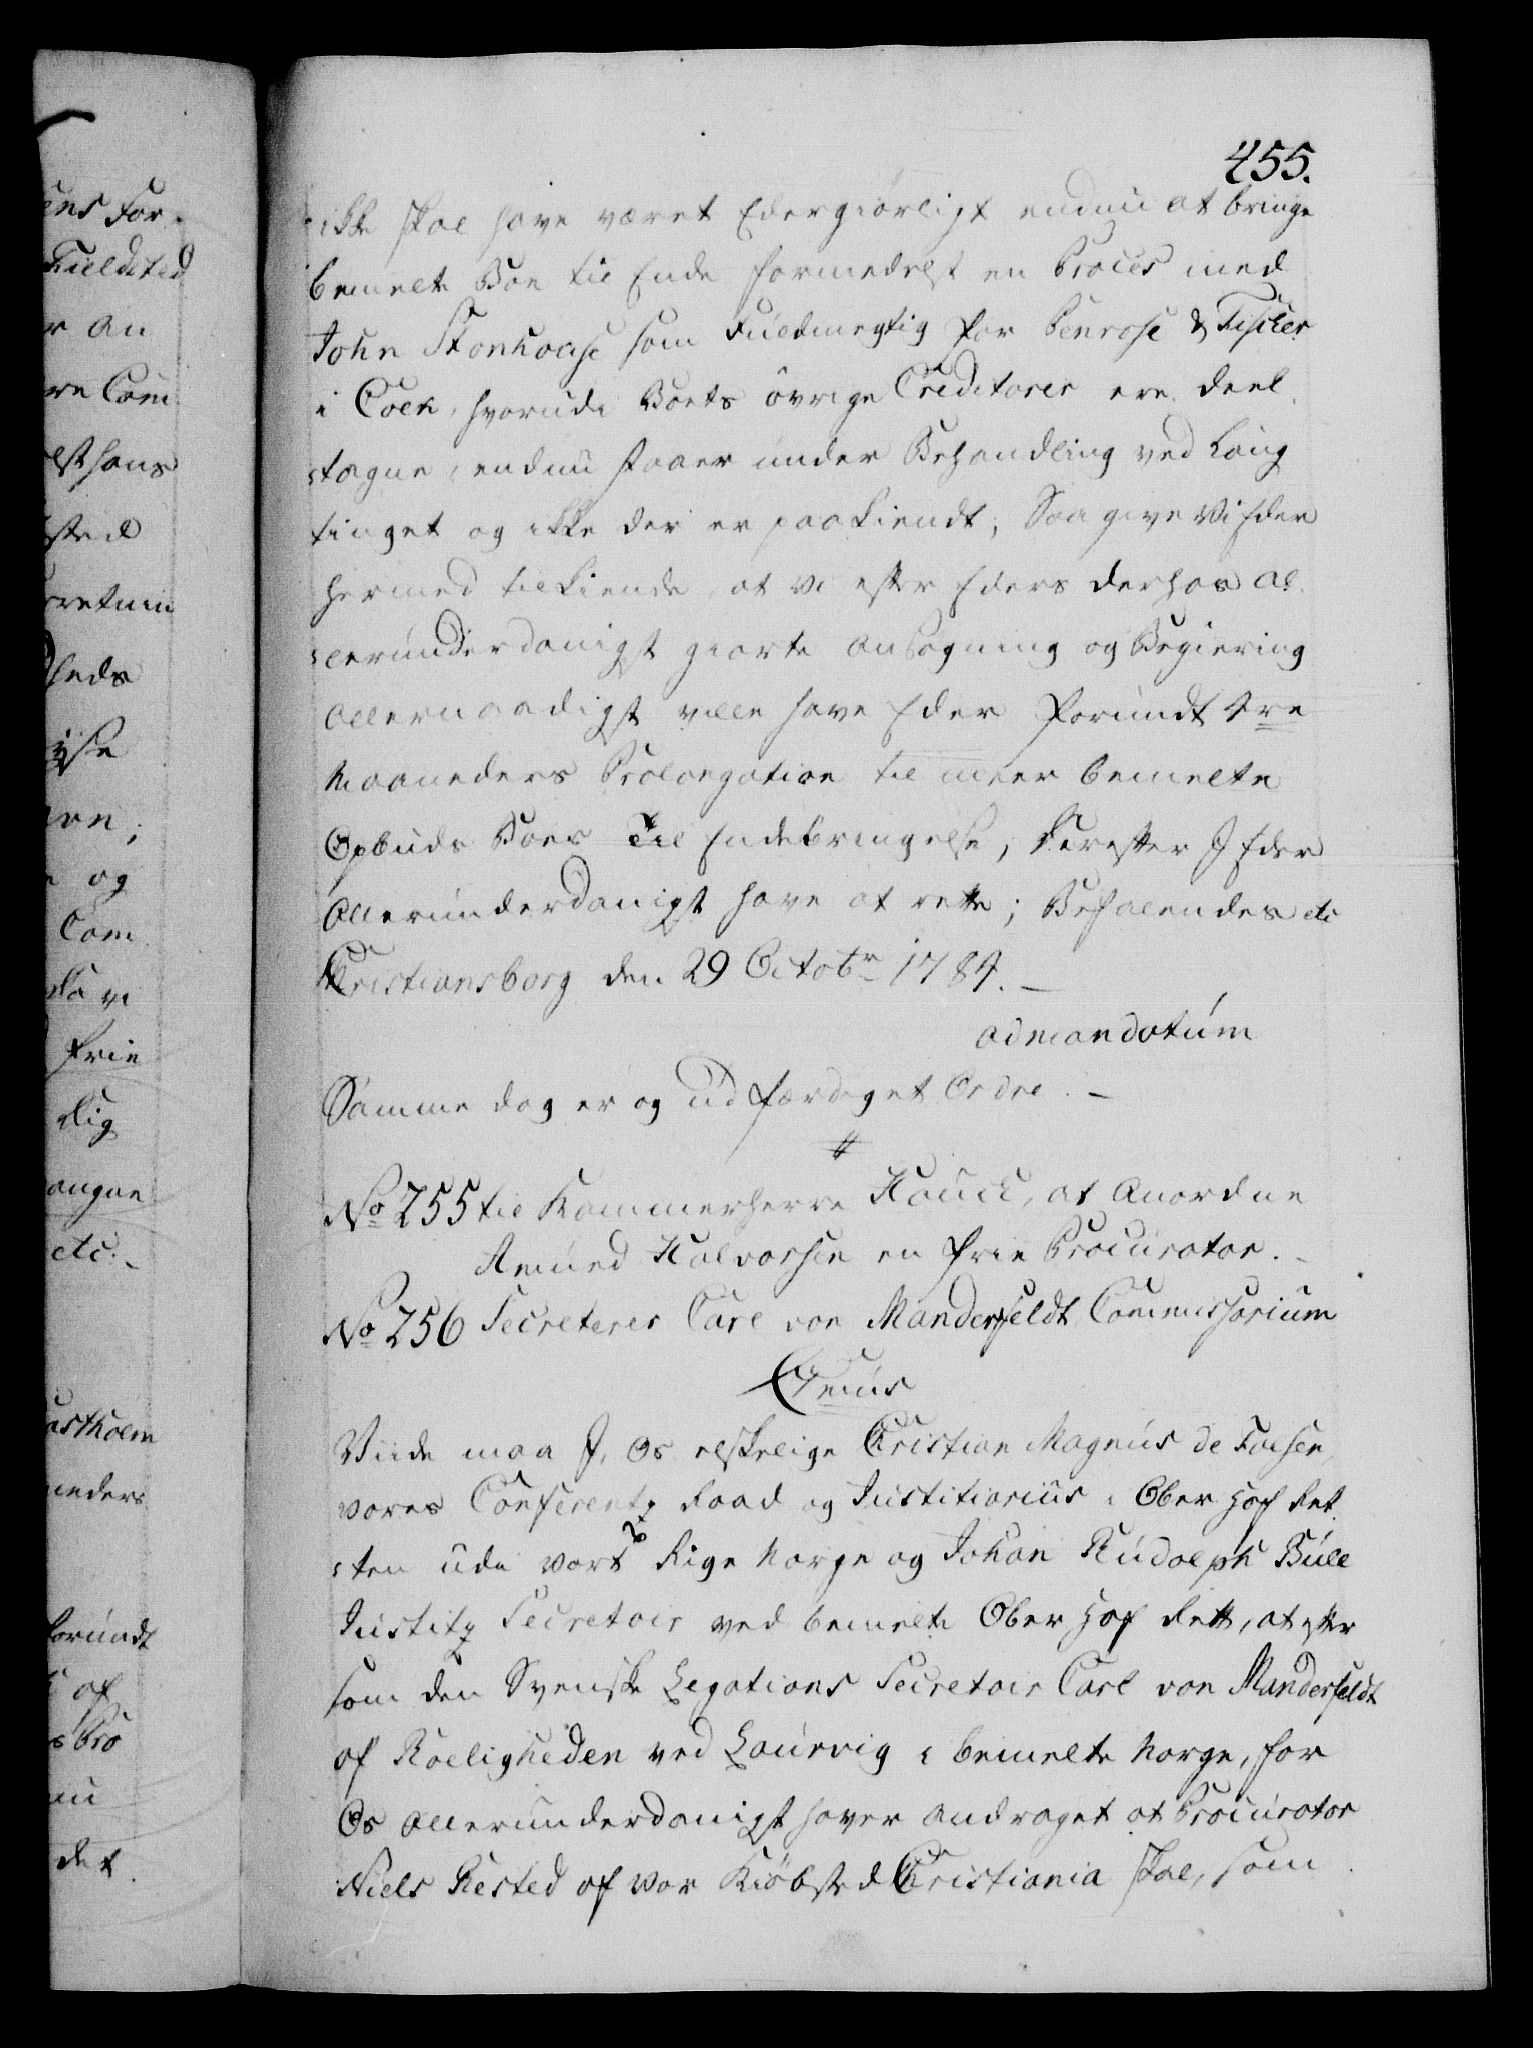 455.
ikke skal have været Eder giørligt endnu at bringe
bemelte Boe til Ende formedelst en Proces med
John Stonhouse som Fuldmegtig for Penrose & Fischer
i Cork, hvorudi Boets øvrige Creditorer ere deel-
tagne, endnu staaer under Behandling ved Laug-
tinget og ikke der er paakiendt; Saa give Vi Eder
hermed tilkiende, at vi efter Eders derhos al-
lerunderdanigst giorte Ansøgning og Begiering
Allernaadigst ville have Eder forundt 4re
Maaneders Prolongation til meer bemelte
Opbuds Boes Til Endebringelse; Derefter I Eder
Allerunderdanigst have at rette; Befalendes etc
Christiansborg den 29 Octobr 1784. —
ad mandatum
Samme dag er og udfærdiget Ordre. —
No 255 til Kammerherre Hauch, at Anordne
Amund Halvorsen en frie Procurator. —
No 256 Secreterer Carl von Manderfeldt, Commissorium
Viide maa I, Os elskelige Christian Magnus de Falsen,
vores Conferentz Raad og Justitiarius i Ober Hof Ret-
ten udi vort Rige Norge og Johan Rudolph Bull
Justitz Secretair ved bemelte Ober Hof Rett, at efter
som den Svenske Legations Secretair Carl von Manderfeldt
af Roeligheden ved Laurvig i bemelte Norge, for
Os Allerunderdanigst haver andraget at Procurator
Niels Rested af vor Kiøbsted Christiania skal, som